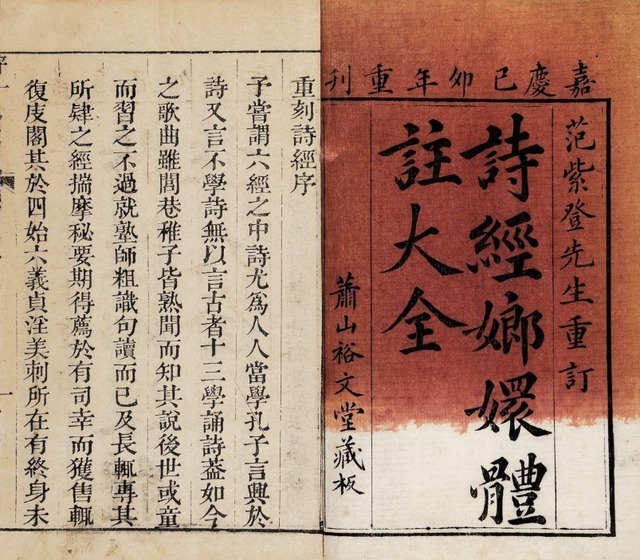 嘉慶己卯年重刊
范紫登先生重訂
詩經嫏嬛體
註大全
蕭山裕文堂藏板
重刻詩經序
子嘗謂六經之中詩尤為人人當學孔子言興於
詩又言不學詩無以言古者十三學誦詩葢如今
之歌曲雖閭巷稚子皆熟聞而知其說後世或童
而習之不過就塾師粗識句讀而已及長輒專其
所肄之經揣摩秘要期得薦於有司幸而獲售輒
復庋閣其於四始六義貞淫美刺所在有終身未